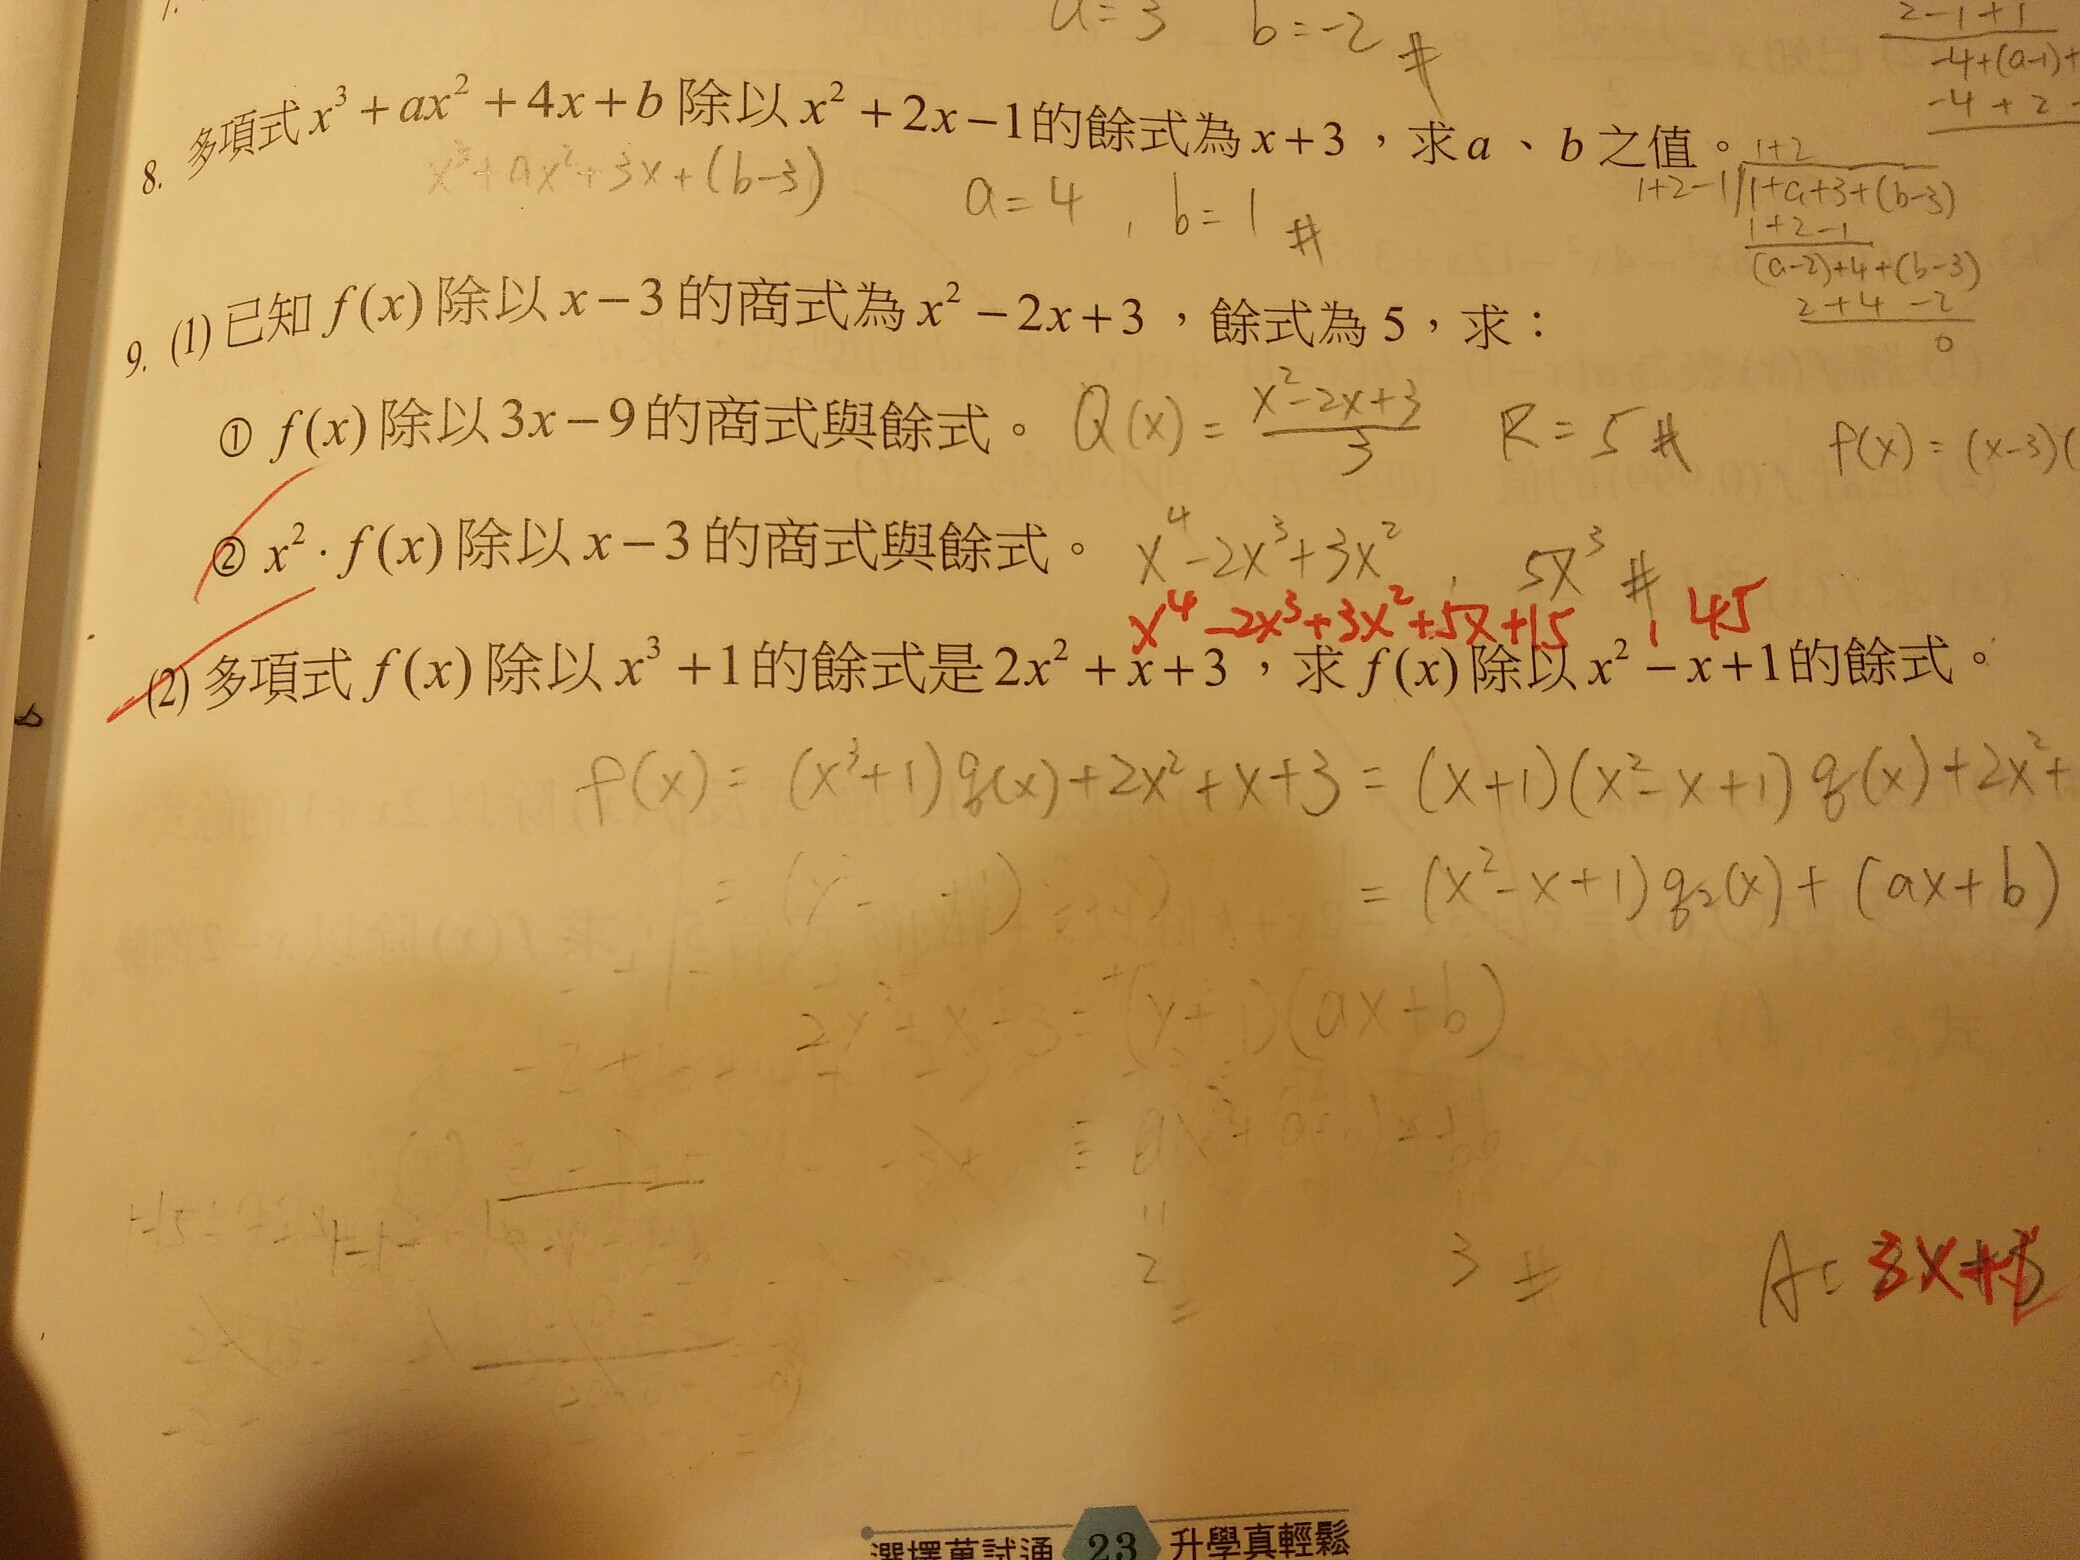 a=3 b=-2 #
2-1+1
-4+(a-1)+
-4+2-
8. 多項式 x³+ax²+4x+b 除以 x²+2x-1 的餘式為 x+3，求 a、b 之值。
x³+ax²+3x+(b-3)
a=4, b=1 #
1+2
1+2-1 1+a+3+(b-3)
1+2-1
(a-2)+4+(b-3)
2+4-2
0
9. (1) 已知 f(x) 除以 x-3 的商式為 x²-2x+3，餘式為 5，求：
① f(x) 除以 3x-9 的商式與餘式。 Q(x)= (x²-2x+3)/3 R=5 #
f(x)=(x-3)(
② x²·f(x) 除以 x-3 的商式與餘式。 x⁴-2x³+3x², 5x³ #
x⁴-2x³+3x²+5x+15, 45
(2) 多項式 f(x) 除以 x³+1 的餘式是 2x²+x+3，求 f(x) 除以 x²-x+1 的餘式。
f(x)=(x³+1)q(x)+2x²+x+3=(x+1)(x²-x+1)q(x)+2x²+
=(x²-x+1)q₂(x)+(ax+b)
(ax+b)
2
3 #
A: 3x+1
選擇萬試通 23 升學真輕鬆